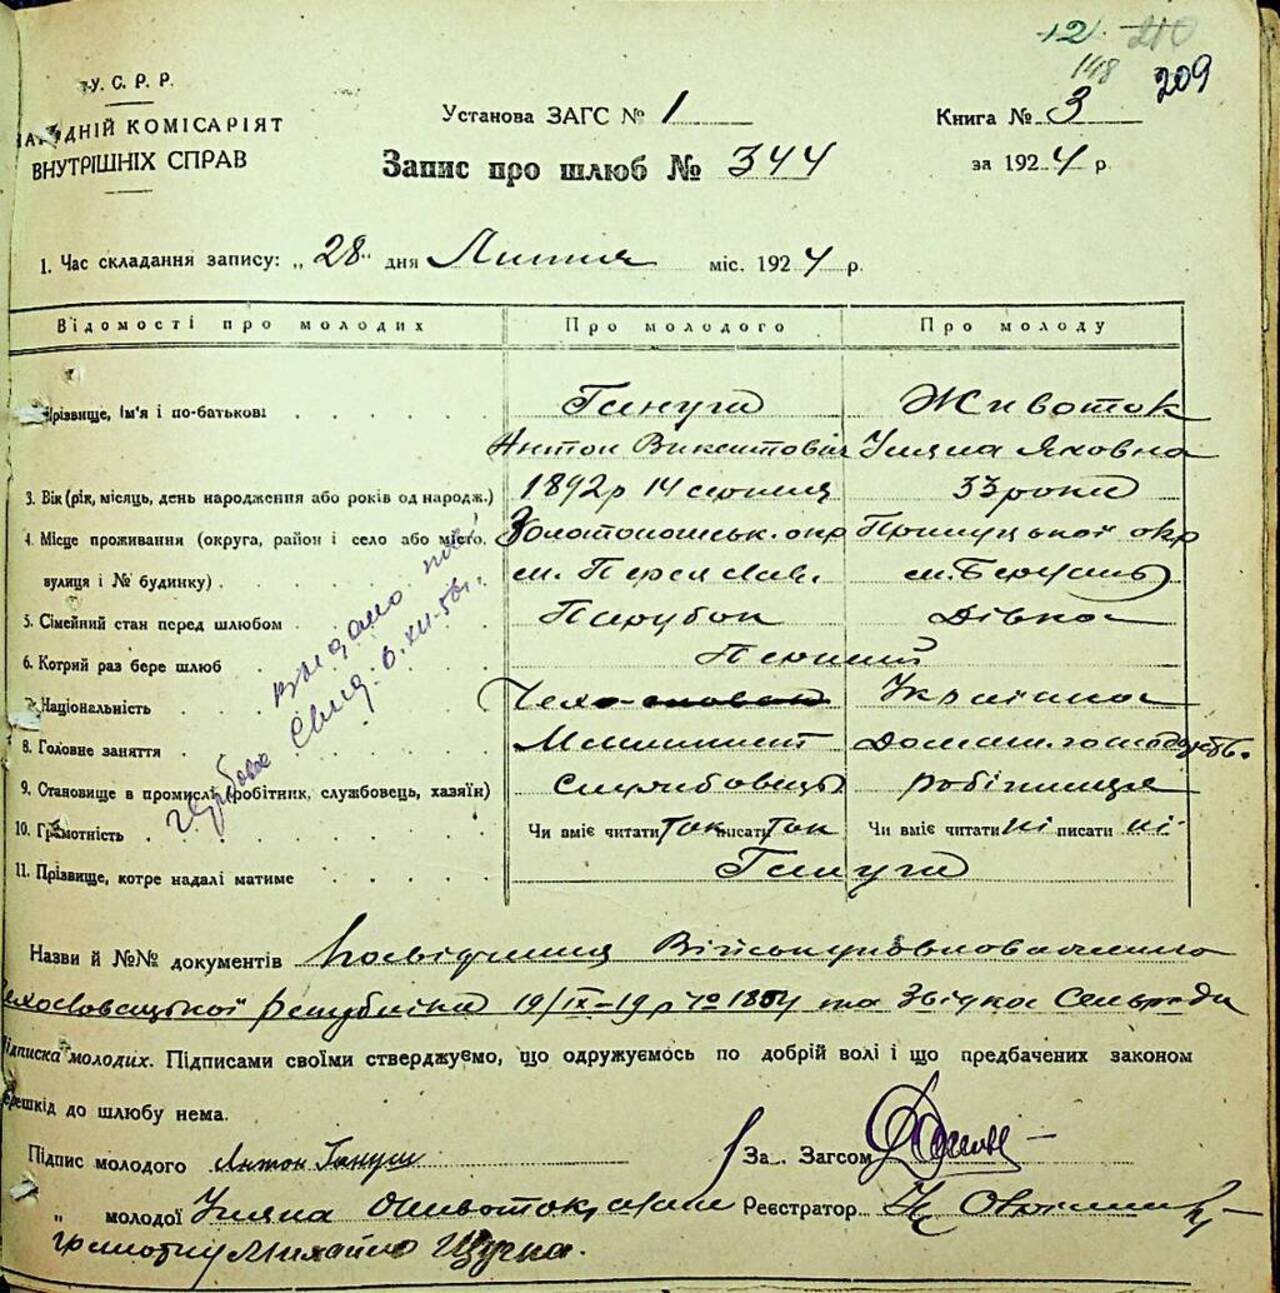 12. 210
148 209
У. С. Р. Р.
НАРОДНІЙ КОМІСАРІЯТ
ВНУТРІШНІХ СПРАВ
Установа ЗАГС № 1
Книга № 3
Запис про шлюб № 344
за 1924 р.
1. Час складання запису: „28" дня Липня міс. 1924 р.
Відомості про молодих Про молодого Про молоду
Прізвище, ім'я і по-батькові Гануш Животок
Антон Викентовіч Уляна Яковна
3. Вік (рік, місяць, день народження або років од народж.) 1892 р 14 серпня 33 роки
4. Місце проживання (округа, район і село або місто, Золотоношськ. окр Прилуцької окр
вулиця і № будинку) м. Переяслав. м. Березань
5. Сімейний стан перед шлюбом Парубок Дівка
6. Котрий раз бере шлюб Перший
7. Національність Чехо-словак Українка
8. Головне заняття Машиніст Домаш. господарств.
9. Становище в промислі (робітник, службовець, хазяїн) Службовець робітниця
10. Грамотність Чи вміє читати так писати так Чи вміє читати ні писати ні
11. Прізвище, котре надалі матиме Гануш
видано
Свид. 6.XII.50г.
Назви й №№ документів Посвідчення Військуповноваженого
Чехословацької Републіки 19/IX-19 р № 1854 та Звідка Сельради
Підписка молодих. Підписами своїми стверджуємо, що одружуємось по добрій волі і що предбачених законом
перешкід до шлюбу нема.
Підпис молодого Антон Гануш За. Загсом
„ молодої Уляна Животок, а за не Реєстратор
грамотну Михайло Щучка.